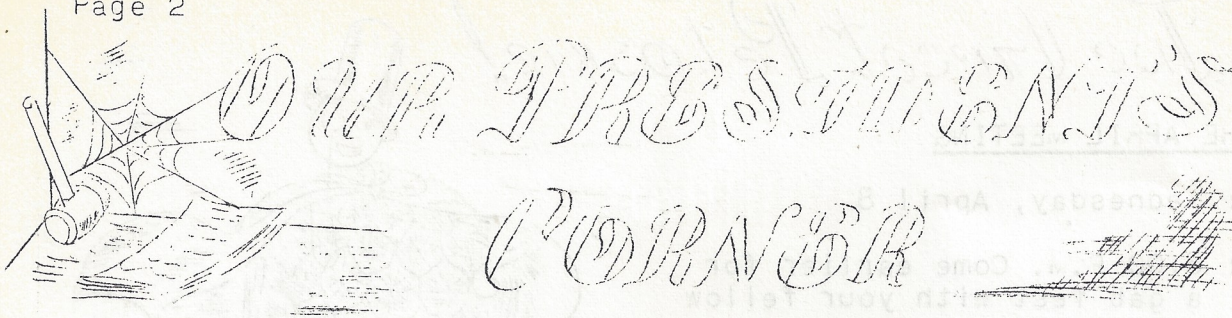 Page 2
OUR PRESIDENT'S
CORNER